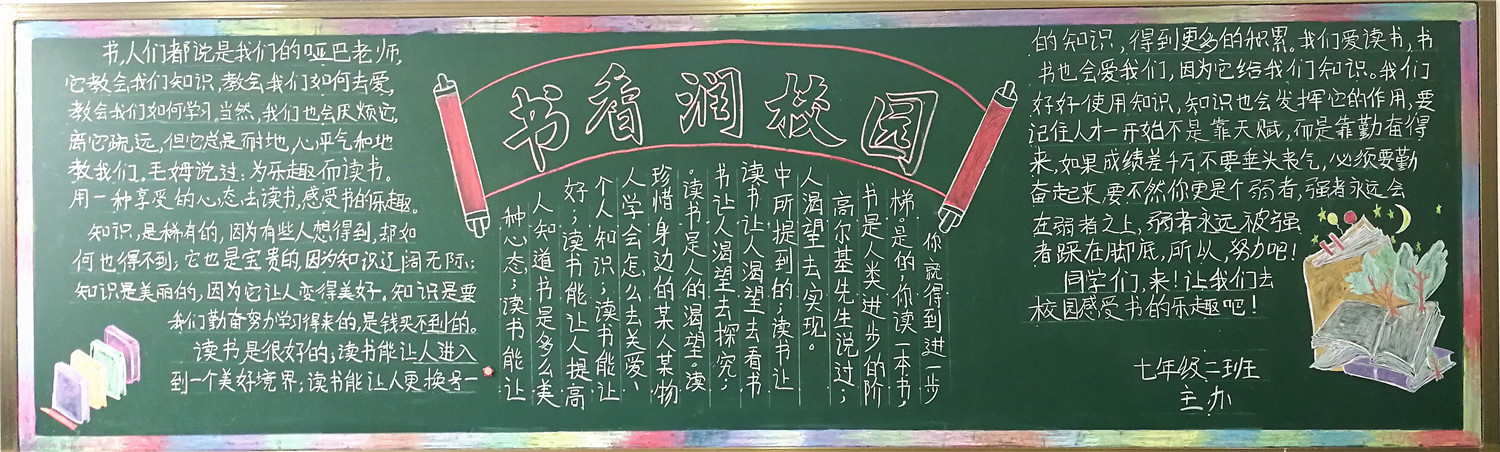 书看润校园
书,人们都说是我们的哑巴老师,
它教会我们知识,教会我们如何去爱,
教会我们如何学习。当然,我们也会厌烦它,
离它疏远,但它总是耐地,心平气和地
教我们。毛姆说过:为乐趣而读书。
用一种享受的心态去读书,感受书的乐趣。
知识,是稀有的,因为有些人想得到,却如
何也得不到;它也是宝贵的,因为知识辽阔无际;
知识是美丽的,因为它让人变得美好。知识是要
我们勤奋努力学习得来的,是钱买不到的。
读书是很好的;读书能让人进入
到一个美好境界;读书能让人更换号一
种心态;读书能让
人知道书是多么美
好;读书能让人提高
个人知识;读书能让
人学会怎么去关爱、
珍惜身边的某人某物
。读书是人的渴望。读
书让人渴望去探究;
读书让人渴望去看书
中所提到的;读书让
人渴望去实现。
高尔基先生说过;
书是人类进步的阶
梯。是的,你读一本书,
你就得到进一步
的知识,得到更多的积累。我们爱读书,书
书也会爱我们,因为它给我们知识。我们
好好使用知识,知识也会发挥它的作用,要
记住人才一开始不是靠天赋,而是靠勤奋得
来,如果成绩差千万不要垂头丧气,必须要勤
奋起来,要不然你更是个弱者,强者永远会
在弱者之上,弱者永远被强
者踩在脚底,所以,努力吧!
同学们,来!让我们去
校园感受书的乐趣吧!
七年级二班
主办